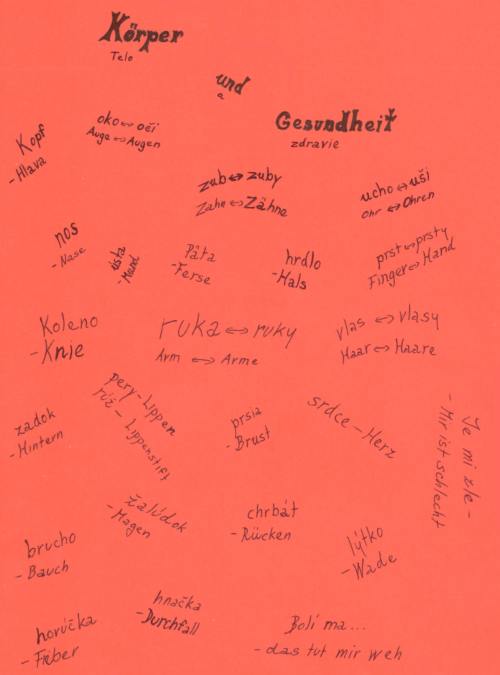 Körper
Telo
und
a
Gesundheit
zdravie
Kopf
-Hlava
oko ↔ oči
Auge ↔ Augen
zub ↔ zuby
Zahn ↔ Zähne
ucho ↔ uši
Ohr ↔ Ohren
nos
-Nase
ústa
-Mund
Päta
-Ferse
hrdlo
-Hals
prst ↔ prsty
Finger ↔ Hand
Koleno
-Knie
ruka ↔ ruky
Arm ↔ Arme
vlas ↔ vlasy
Haar ↔ Haare
zadok
-Hintern
pery-Lippen
rúž-Lippenstift
prsia
-Brust
srdce-Herz
Je mi zle-
-Mir ist schlecht
žalúdok
-Magen
chrbát
-Rücken
brucho
-Bauch
lýtko
-Wade
horúčka
-Fieber
hnačka
-Durchfall
Bolí ma...
-das tut mir weh